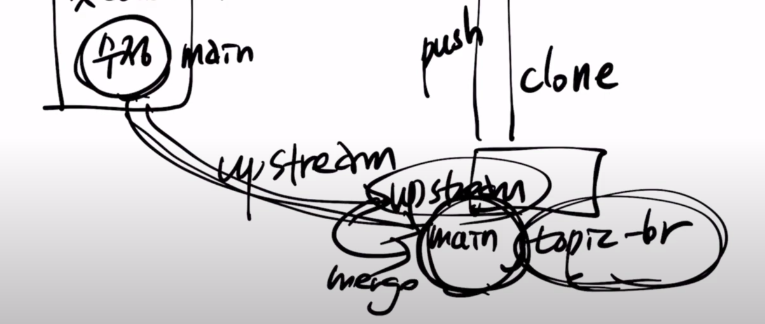 수정 main
push
clone
upstream
upstream
main topic-br
merge